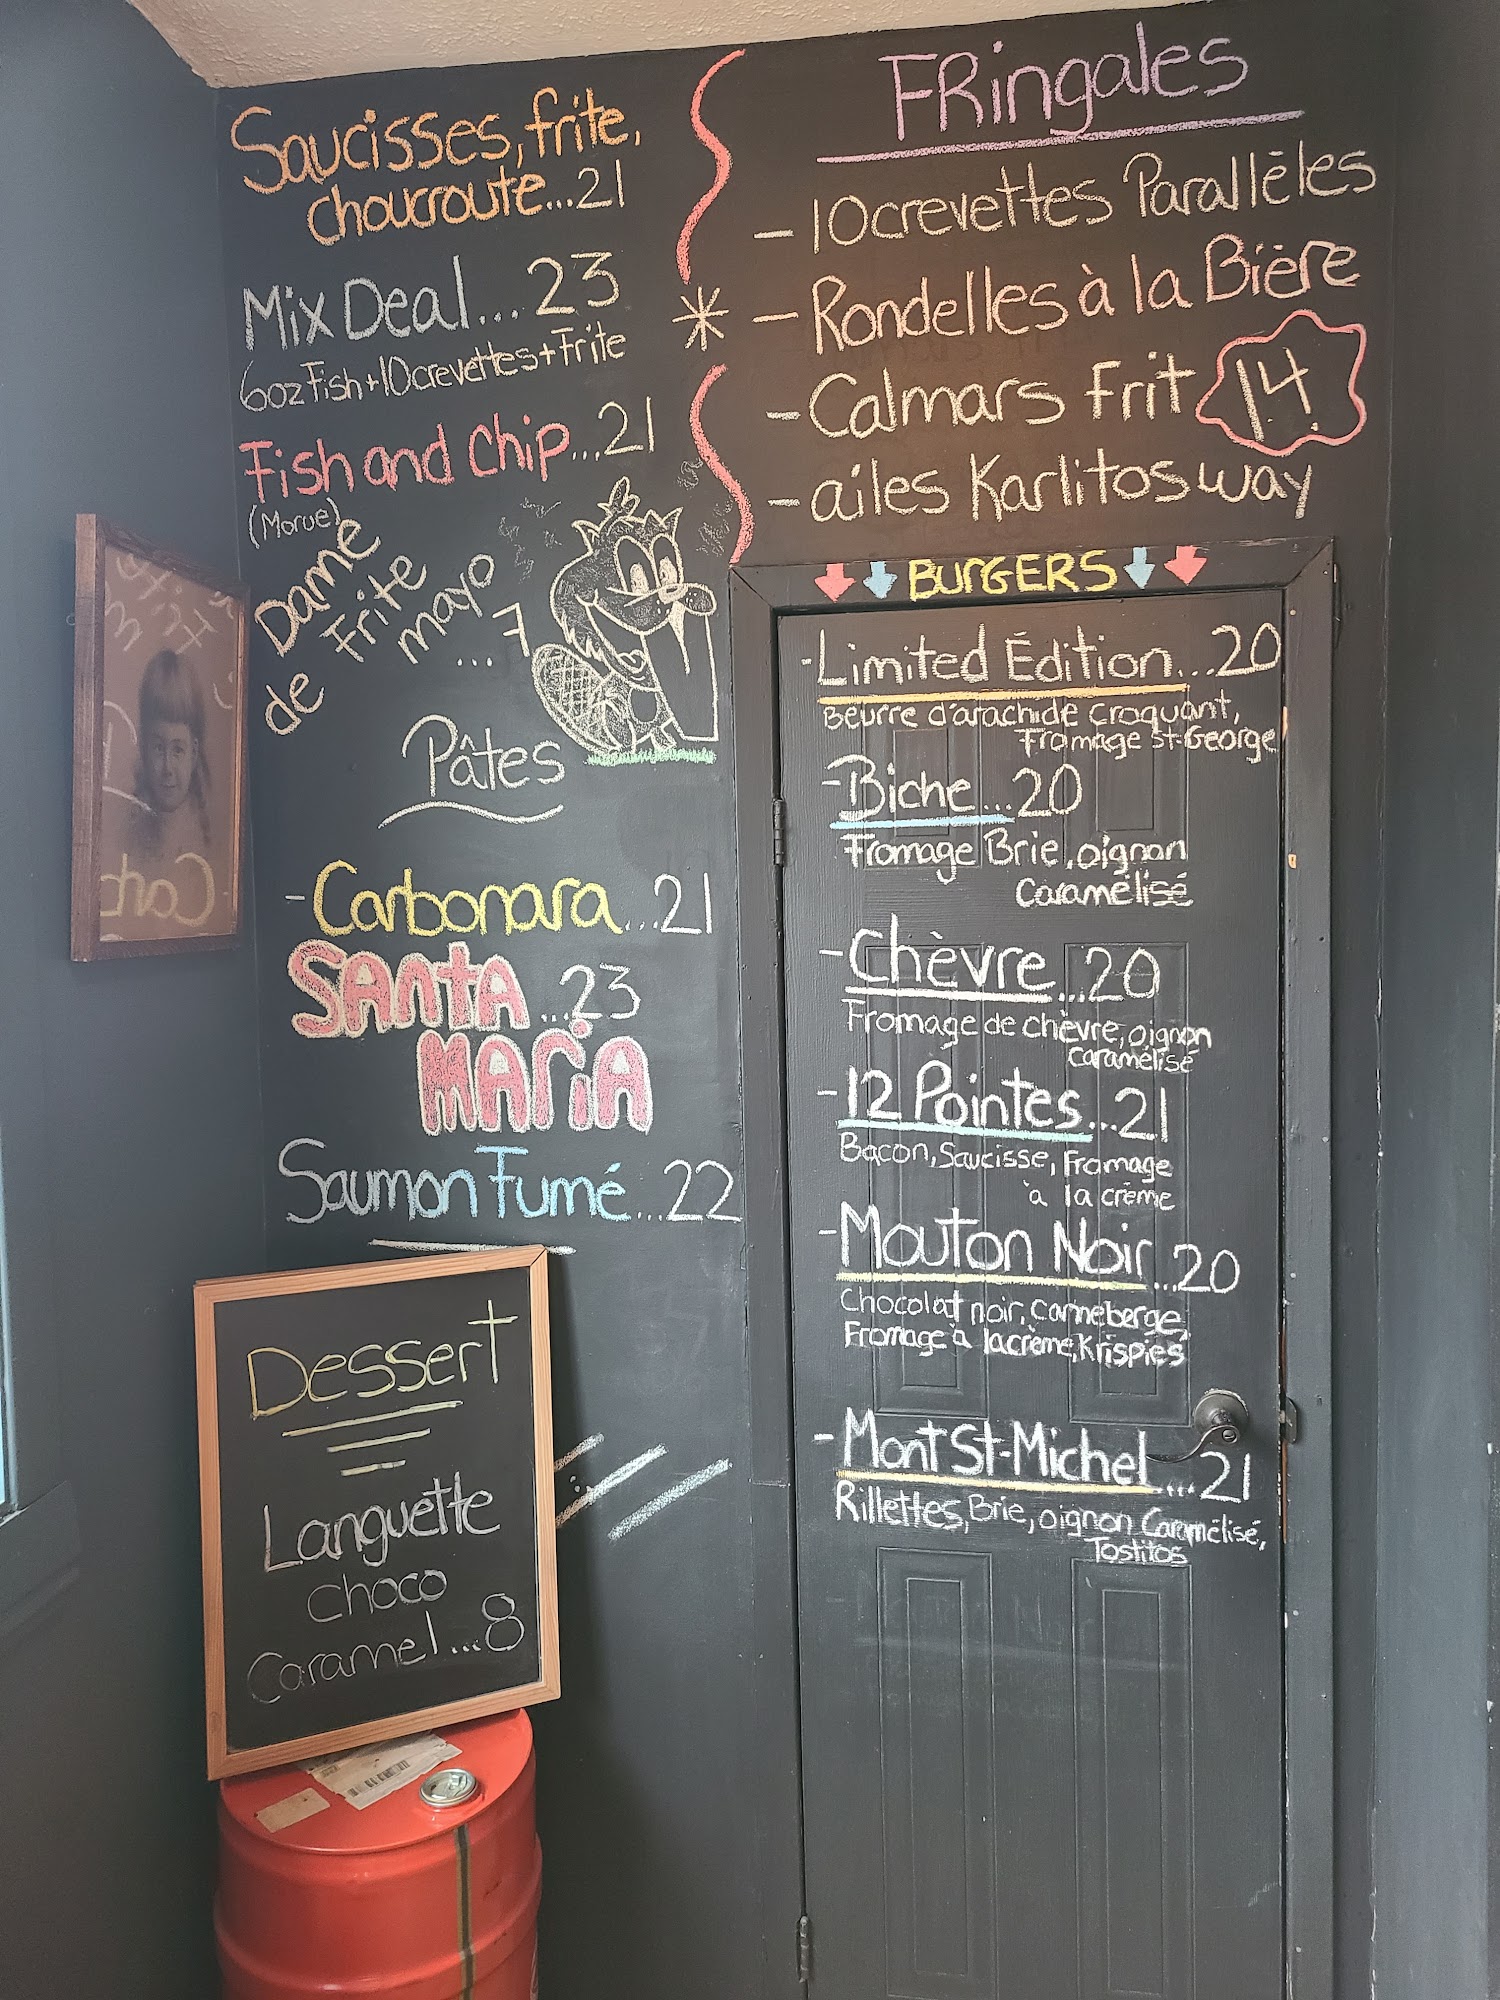 Saucisses, frite,
choucroute...21
Mix Deal...23
6oz Fish+10crevettes+Frite
Fish and Chip...21
(Morue)
Dame
de Frite
mayo
...7
Pâtes
-Carbonara...21
SANTA ...23
MARIA
Saumon Fumé...22
Dessert
Languette
choco
Caramel...8
FRingales
-10crevettes Parallèles
-Rondelles à la Bière
-Calmars Frit 14
-ailes Karlitosway
BURGERS
-Limited Édition...20
Beurre d'arachide croquant,
Fromage St-George
-Biche...20
Fromage Brie, oignon
caramélisé
-Chèvre...20
Fromage de chèvre, oignon
caramélisé
-12 Pointes...21
Bacon, Saucisse, Fromage
à la crème
-Mouton Noir...20
Chocolat noir, Canneberge,
Fromage à la crème, Krispiés
-Mont St-Michel....21
Rillettes, Brie, oignon Caramélisé,
Tostitos